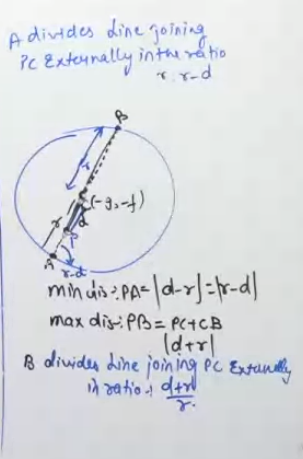 A divides Line joining
PC Externally in the ratio
r : r-d
B
r
C(-g,-f)
r
d
P
A
r-d
min dis:- PA = |d-r| = |r-d|
max dis:- PB = PC+CB
|d+r|
B divides Line joining PC Externally
in ratio : d+r/r.